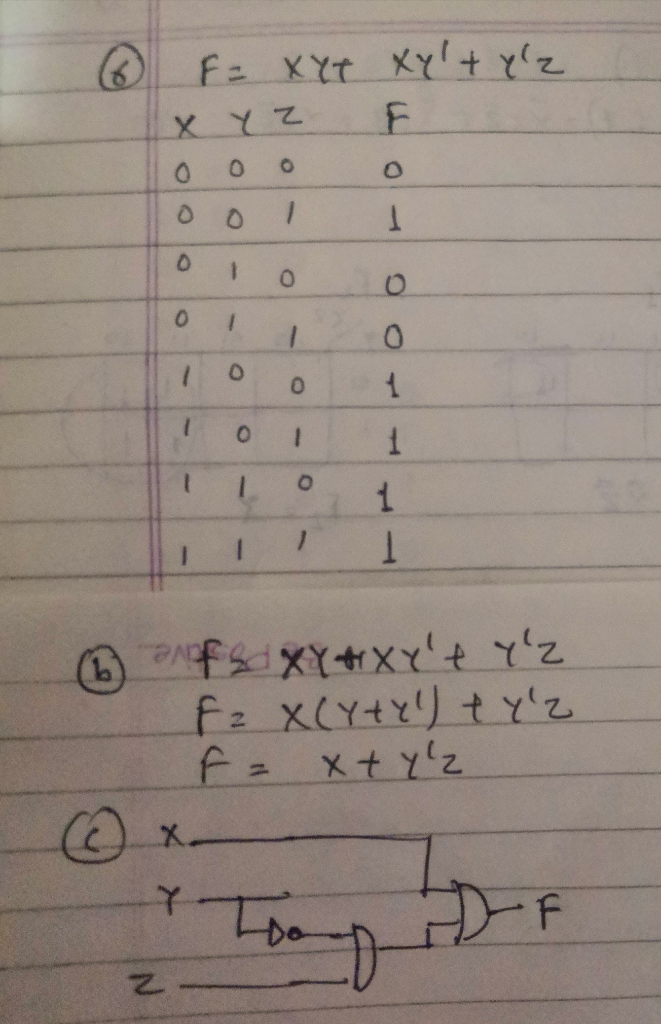 (a) F = XY + XY' + Y'Z
X Y Z F
0 0 0 0
0 0 1 1
0 1 0 0
0 1 1 0
1 0 0 1
1 0 1 1
1 1 0 1
1 1 1 1
(b) F = XY + XY' + Y'Z
F = X(Y+Y') + Y'Z
F = X + Y'Z
(c) X
Y
F
Z